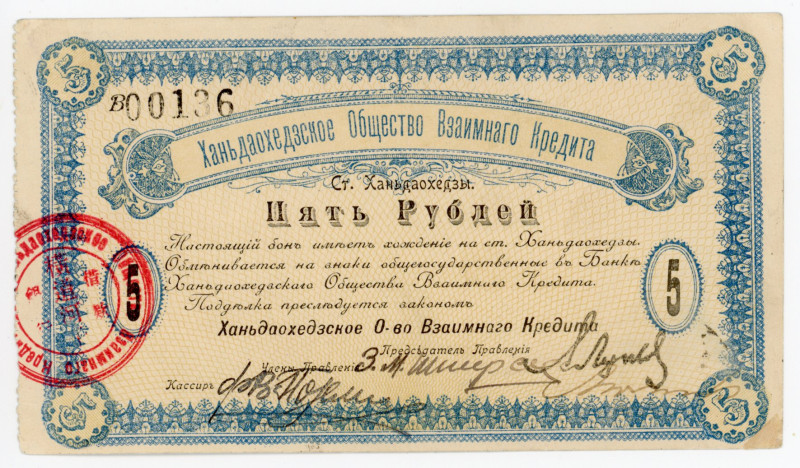 5 5
B00136
Ханьдаохедзское Общество Взаимнаго Кредита
Ст. Ханьдаохедзы.
Пять Рублей
Настоящій бонъ имѣетъ хожденіе на ст. Ханьдаохедзы.
Обмѣнивается на знаки общегосударственные въ Банкѣ
Ханьдаохедзскаго Общества Взаимнаго Кредита.
Поддѣлка преслѣдуется закономъ
5 5
Ханьдаохедзское О-во Взаимнаго Кредита
Предсѣдатель Правленія
Члены Правленія
Кассиръ
5 5